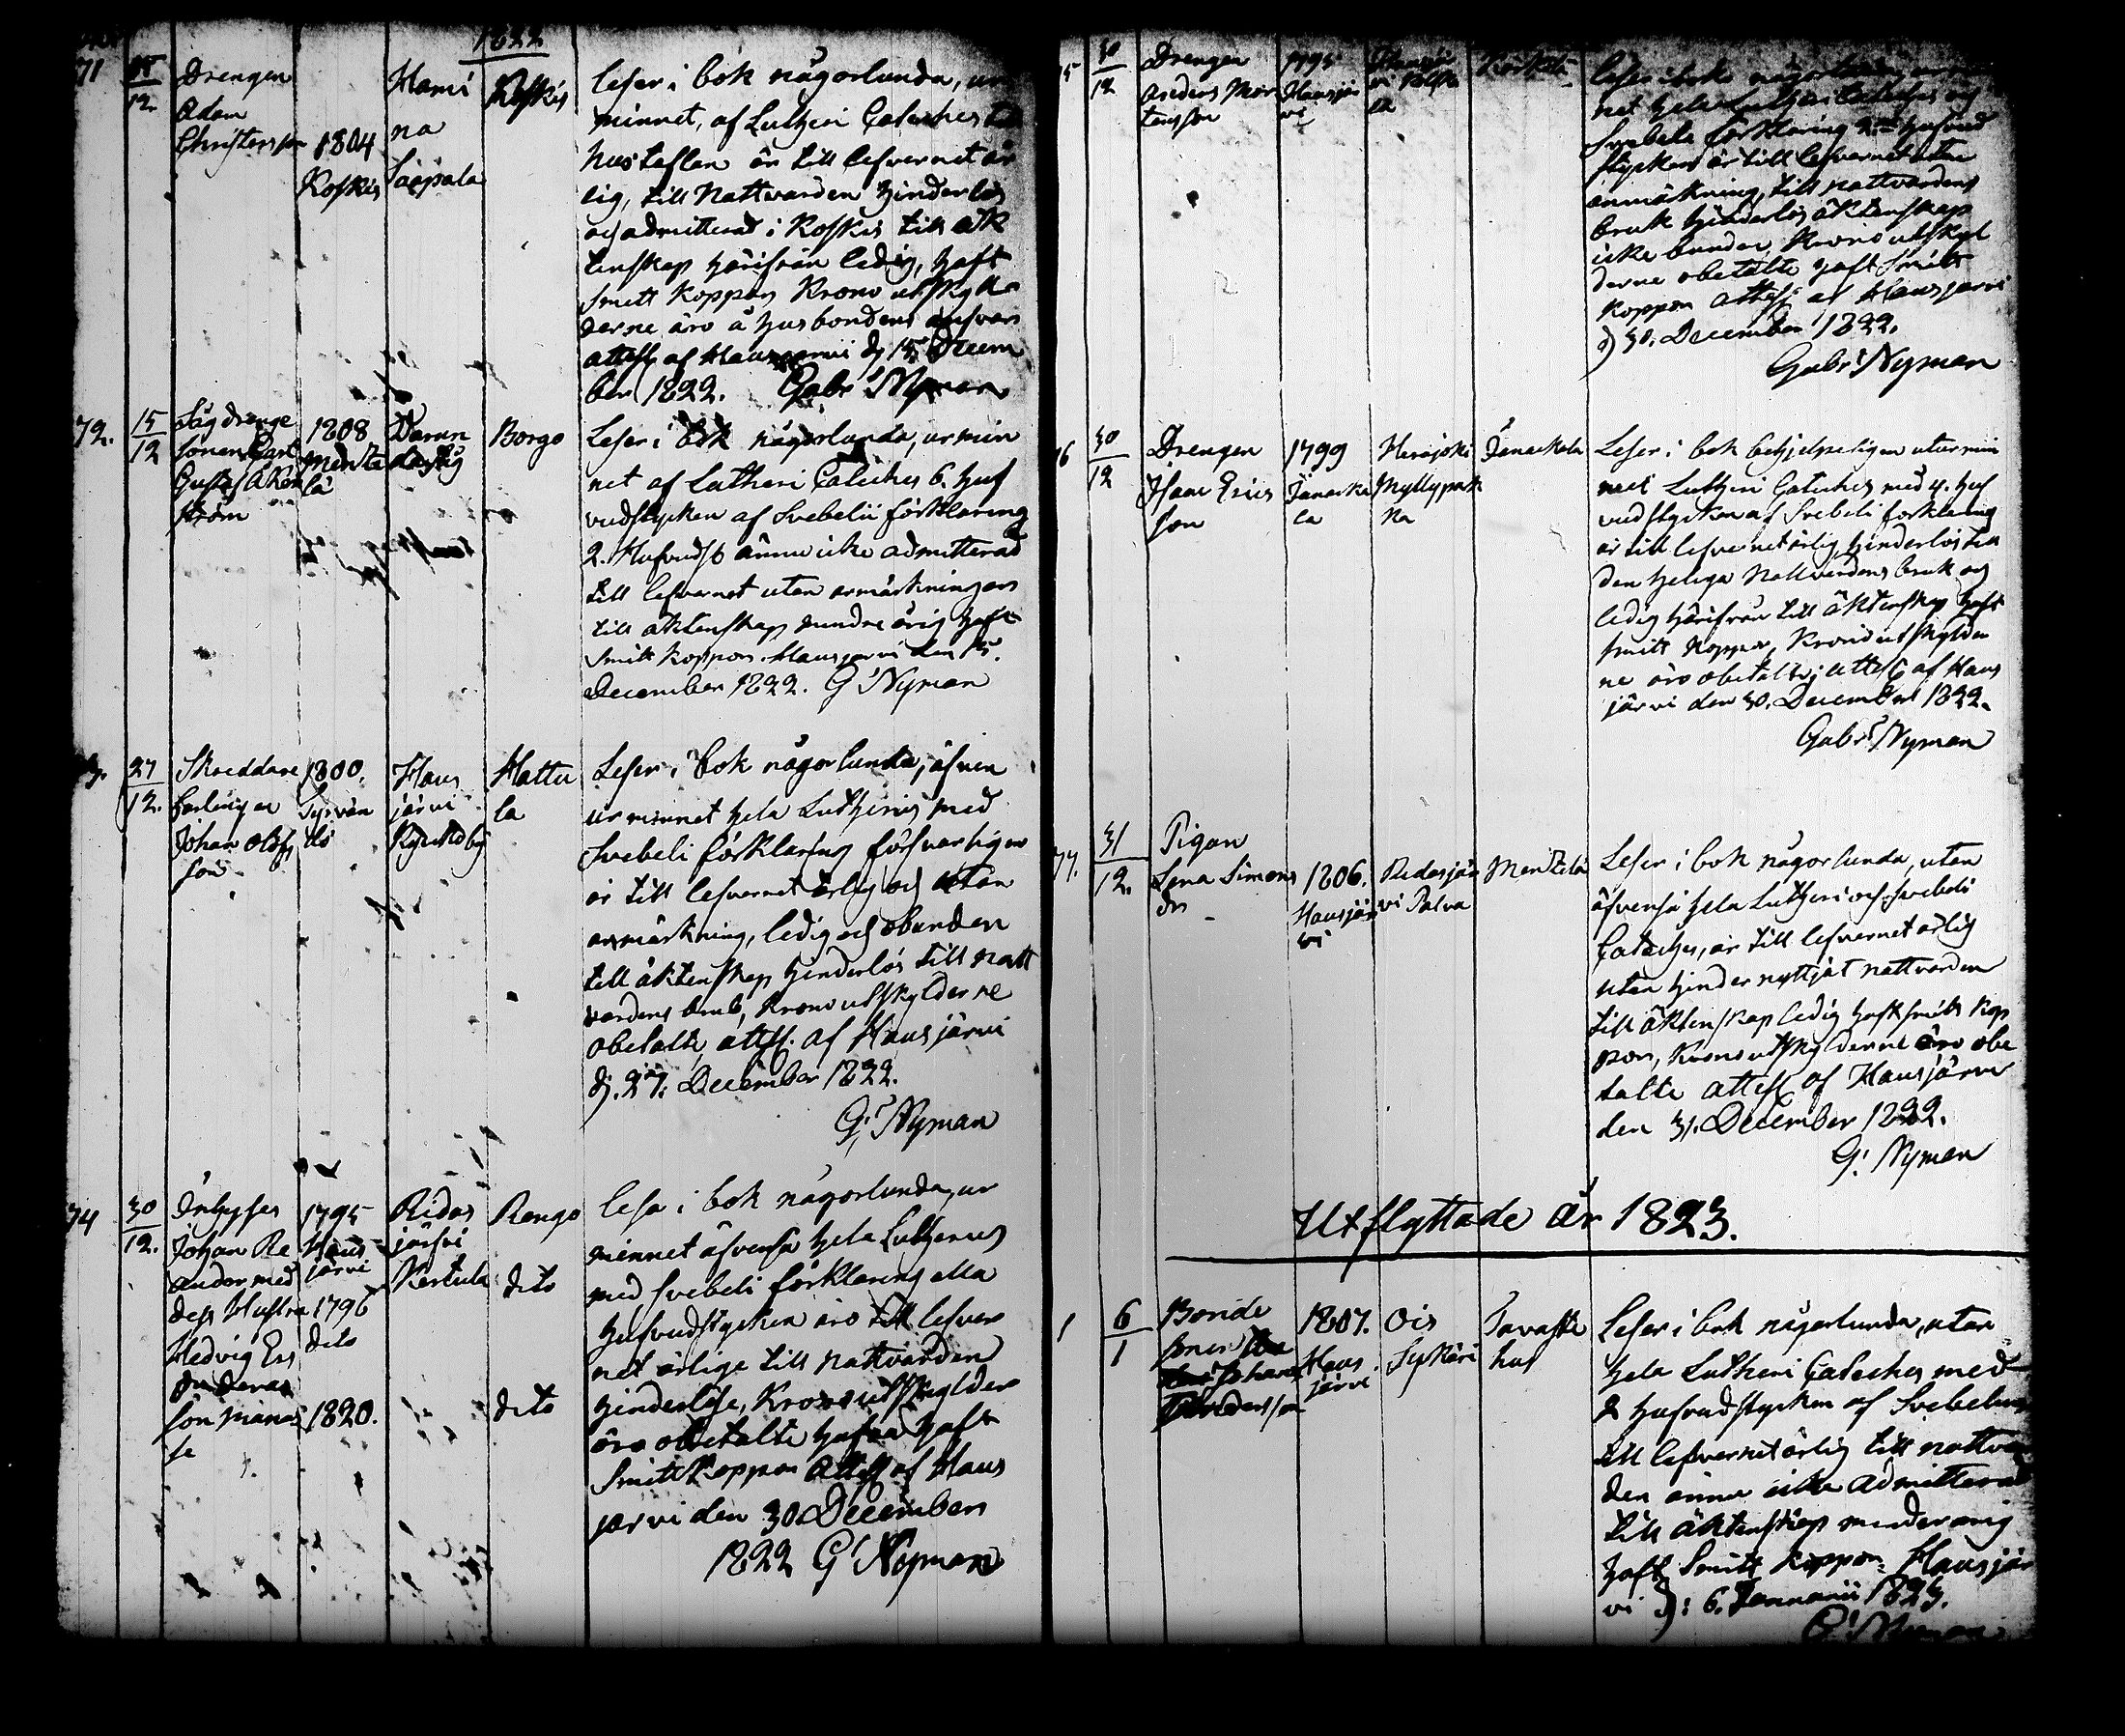 1822
71
15
12.
Drengen
Adam
Christersson
1804
Koskis
Hami
na
Saapala
Koskis
leser i bok någorlunda, ur
minnet, af Lutheri Cateches till
hustaflan är till lefvernet är
lig, till Nattvarden hinderlös
och admitterad i Koskis till äk
tenskap härifrån ledig, haft
Smitt koppor Krono utskyl
derne äro å husbondens ansvar
attest. af Hausjärvi d. 15 Decem
ber 1822. Gabr. Nyman
72.
15
12
Sägdrenge
sonen Carl
Gustaf
ström
1808
Mentze
lä
Borgo
Leser i bok någorlunda, ur min
net af Lutheri Cateches 6. huf
vudstycken af Svebelii förklaring
2. Hufvudst. ännu icke admitterad
till lefvernet utan anmärkningar
till äktenskap mindre årig haft
Smitt koppor. Hausjarvi den 15.
December 1822. G. Nyman
27
12.
Skreddare
Johan Olofs
son
1800.
Haus
järvi
Hattu
la
Leser i bok någorlunda, äfven
ur minnet hela Lutherus med
Svebeli förklaring försvarligen
är till lefvernet ärlig och utan
anmärkning, ledig och obunden
till äktenskap hinderlös till natt
vardens bruk, Krono utskylderne
obetalte, attest. af Hausjärvi
d. 27. December 1822.
G. Nyman
74
30
12.
Inhyses
Johan Re
lander med
dess Hustru
Hedvig Ers
dr deras
son Manas
se
1795
Haus
järvi
1796
dito
1820.
Ridas
järfvi
Kertula
Rengo
dito
dito
lesa i bok någorlunda, ur
minnet äfvenså hela Lutherus
med Svebeli förklaring alla
hufvudstycken äro till lefver
net ärlige till nattvarden
hinderlöse, Krono utskylder
äro obetalte hafva haft
Smitt koppor Attest af Haus
jarvi den 30 December
1822 G. Nyman
75
30
12
Drengen
Anders Mår
tensson
1795
Hausjär
vi
leser i bok någorlunda, ur min
net hela Lutheri Cateches och
Svebeli förklaring 2 hufvud
stycken är till lefvernet utan
anmärkning, till nattvardens
bruk hinderlös äktenskap
icke bunden, Krono utskyl
derne obetalte haft Smitt
koppor attest af Hausjarvi
d 30. December 1822.
Gabr. Nyman
76
30
12
Drengen
Isaac Erics
son
1799
Janacka
la
Herajoki
Myllypak
ka
Janackala
Leser i bok behjelpeligen utur min
net Lutheri Cateches med 4. huf
vudstycken af Svebeli forklaring
är till lefvernet ärlig, hinderlös till
den heliga Nattvardens bruk och
ledig härifrån till äktenskap haft
smitt koppor, Krono utskylder
ne äro obetalte, attest af Haus
järvi den 30. December 1822.
Gabr. Nyman
77.
31
12.
Pigan
Lena Simons
dr
1806.
Hausjär
vi
Ridasjär
vi Palva
Mentzelä
Leser i bok någorlunda, utan
äfvenså hela Lutheri och Svebeli
Cateches, är till lefvernet ärlig
utan hinder nyttjat nattvarden
till äktenskap ledig haft smitt kop
por, Krono utskylderne äro obe
talte attest af Hausjärvi
den 31. December 1822.
G. Nyman
Utflyttade År 1823.
1
6
1
Bonde
sonen
Johan
1807.
Haus
järvi
Ois
Sykäri
Tavaste
hus
Leser i bok någorlunda, utan
hela Lutheri Cateches med
2 hufvudstycken af Svebelius
till lefvernet ärlig till nattvar
den ännu icke admitterad
till äktenskap minderårig
haft Smitt koppor. Hausjär
vi d: 6. Januarii 1823.
G. Nyman